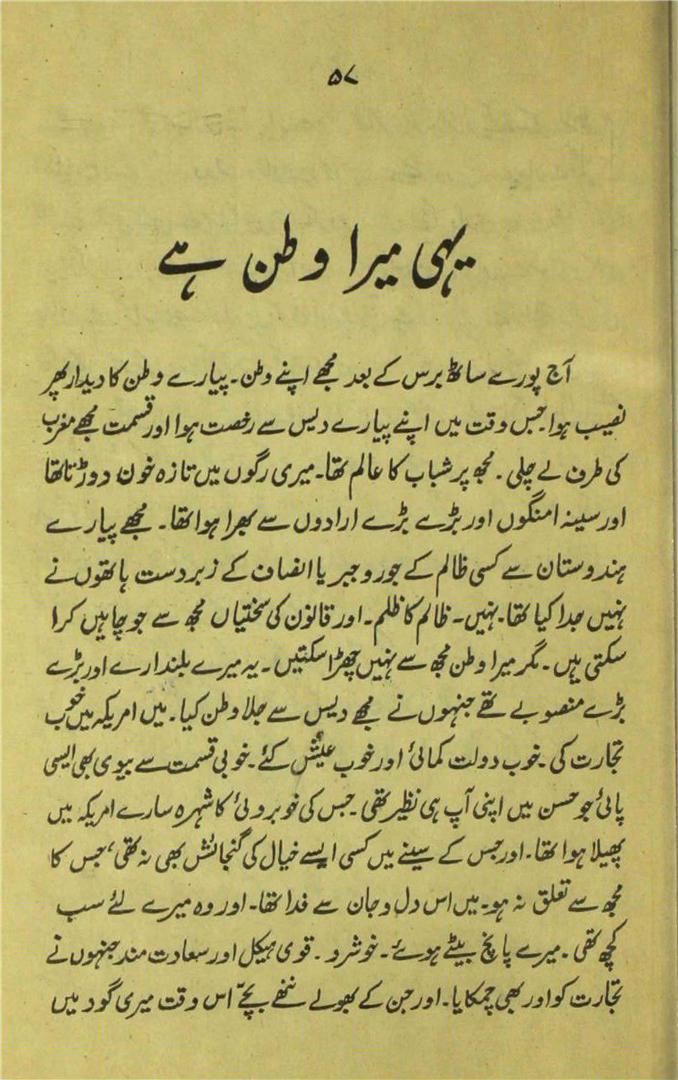 ۵۷
یہی میرا وطن ہے
آج پورے ساٹھ برس کے بعد مجھے اپنے وطن۔ پیارے وطن کا دیدار پھر
نصیب ہوا۔ جس وقت میں اپنے پیارے دیس سے رخصت ہوا اور قسمت مجھے مغرب
کی طرف لے چلی۔ مجھ پر شباب کا عالم تھا۔ میری رگوں میں تازہ خون دوڑتا تھا
اور سینہ امنگوں اور بڑے بڑے ارادوں سے بھرا ہوا تھا۔ مجھے پیارے
ہندوستان سے کسی ظالم کے جور و جبر یا انصاف کے زبردست ہاتھوں نے
نہیں جدا کیا تھا۔ نہیں۔ ظالم کا ظلم۔ اور قانون کی سختیاں مجھ سے جو چاہیں کرا
سکتی ہیں۔ مگر میرا وطن مجھ سے نہیں چھڑا سکتیں۔ یہ میرے بلند ارے اور بڑے
بڑے منصوبے تھے جنہوں نے مجھے دیس سے جلا وطن کیا۔ میں امریکہ میں خوب
تجارت کی۔ خوب دولت کمائی اور خوب عیش کئے۔ خوبی قسمت سے بیوی بھی ایسی
پائی جو حسن میں اپنی آپ ہی نظیر تھی۔ جس کی خوبروئی کا شہرہ سارے امریکہ میں
پھیلا ہوا تھا۔ اور جس کے سینے میں کسی ایسے خیال کی گنجائش بھی نہ تھی، جس کا
مجھ سے تعلق نہ ہو۔ میں اس دل و جان سے فدا تھا۔ اور وہ میرے لئے سب
کچھ تھی۔ میرے پانچ بیٹے ہوئے۔ خوشرو۔ قوی ہیکل اور سعادت مند جنہوں نے
تجارت کو اور بھی چمکایا۔ اور جن کے بھولے ننھے بچے اس وقت میری گود میں